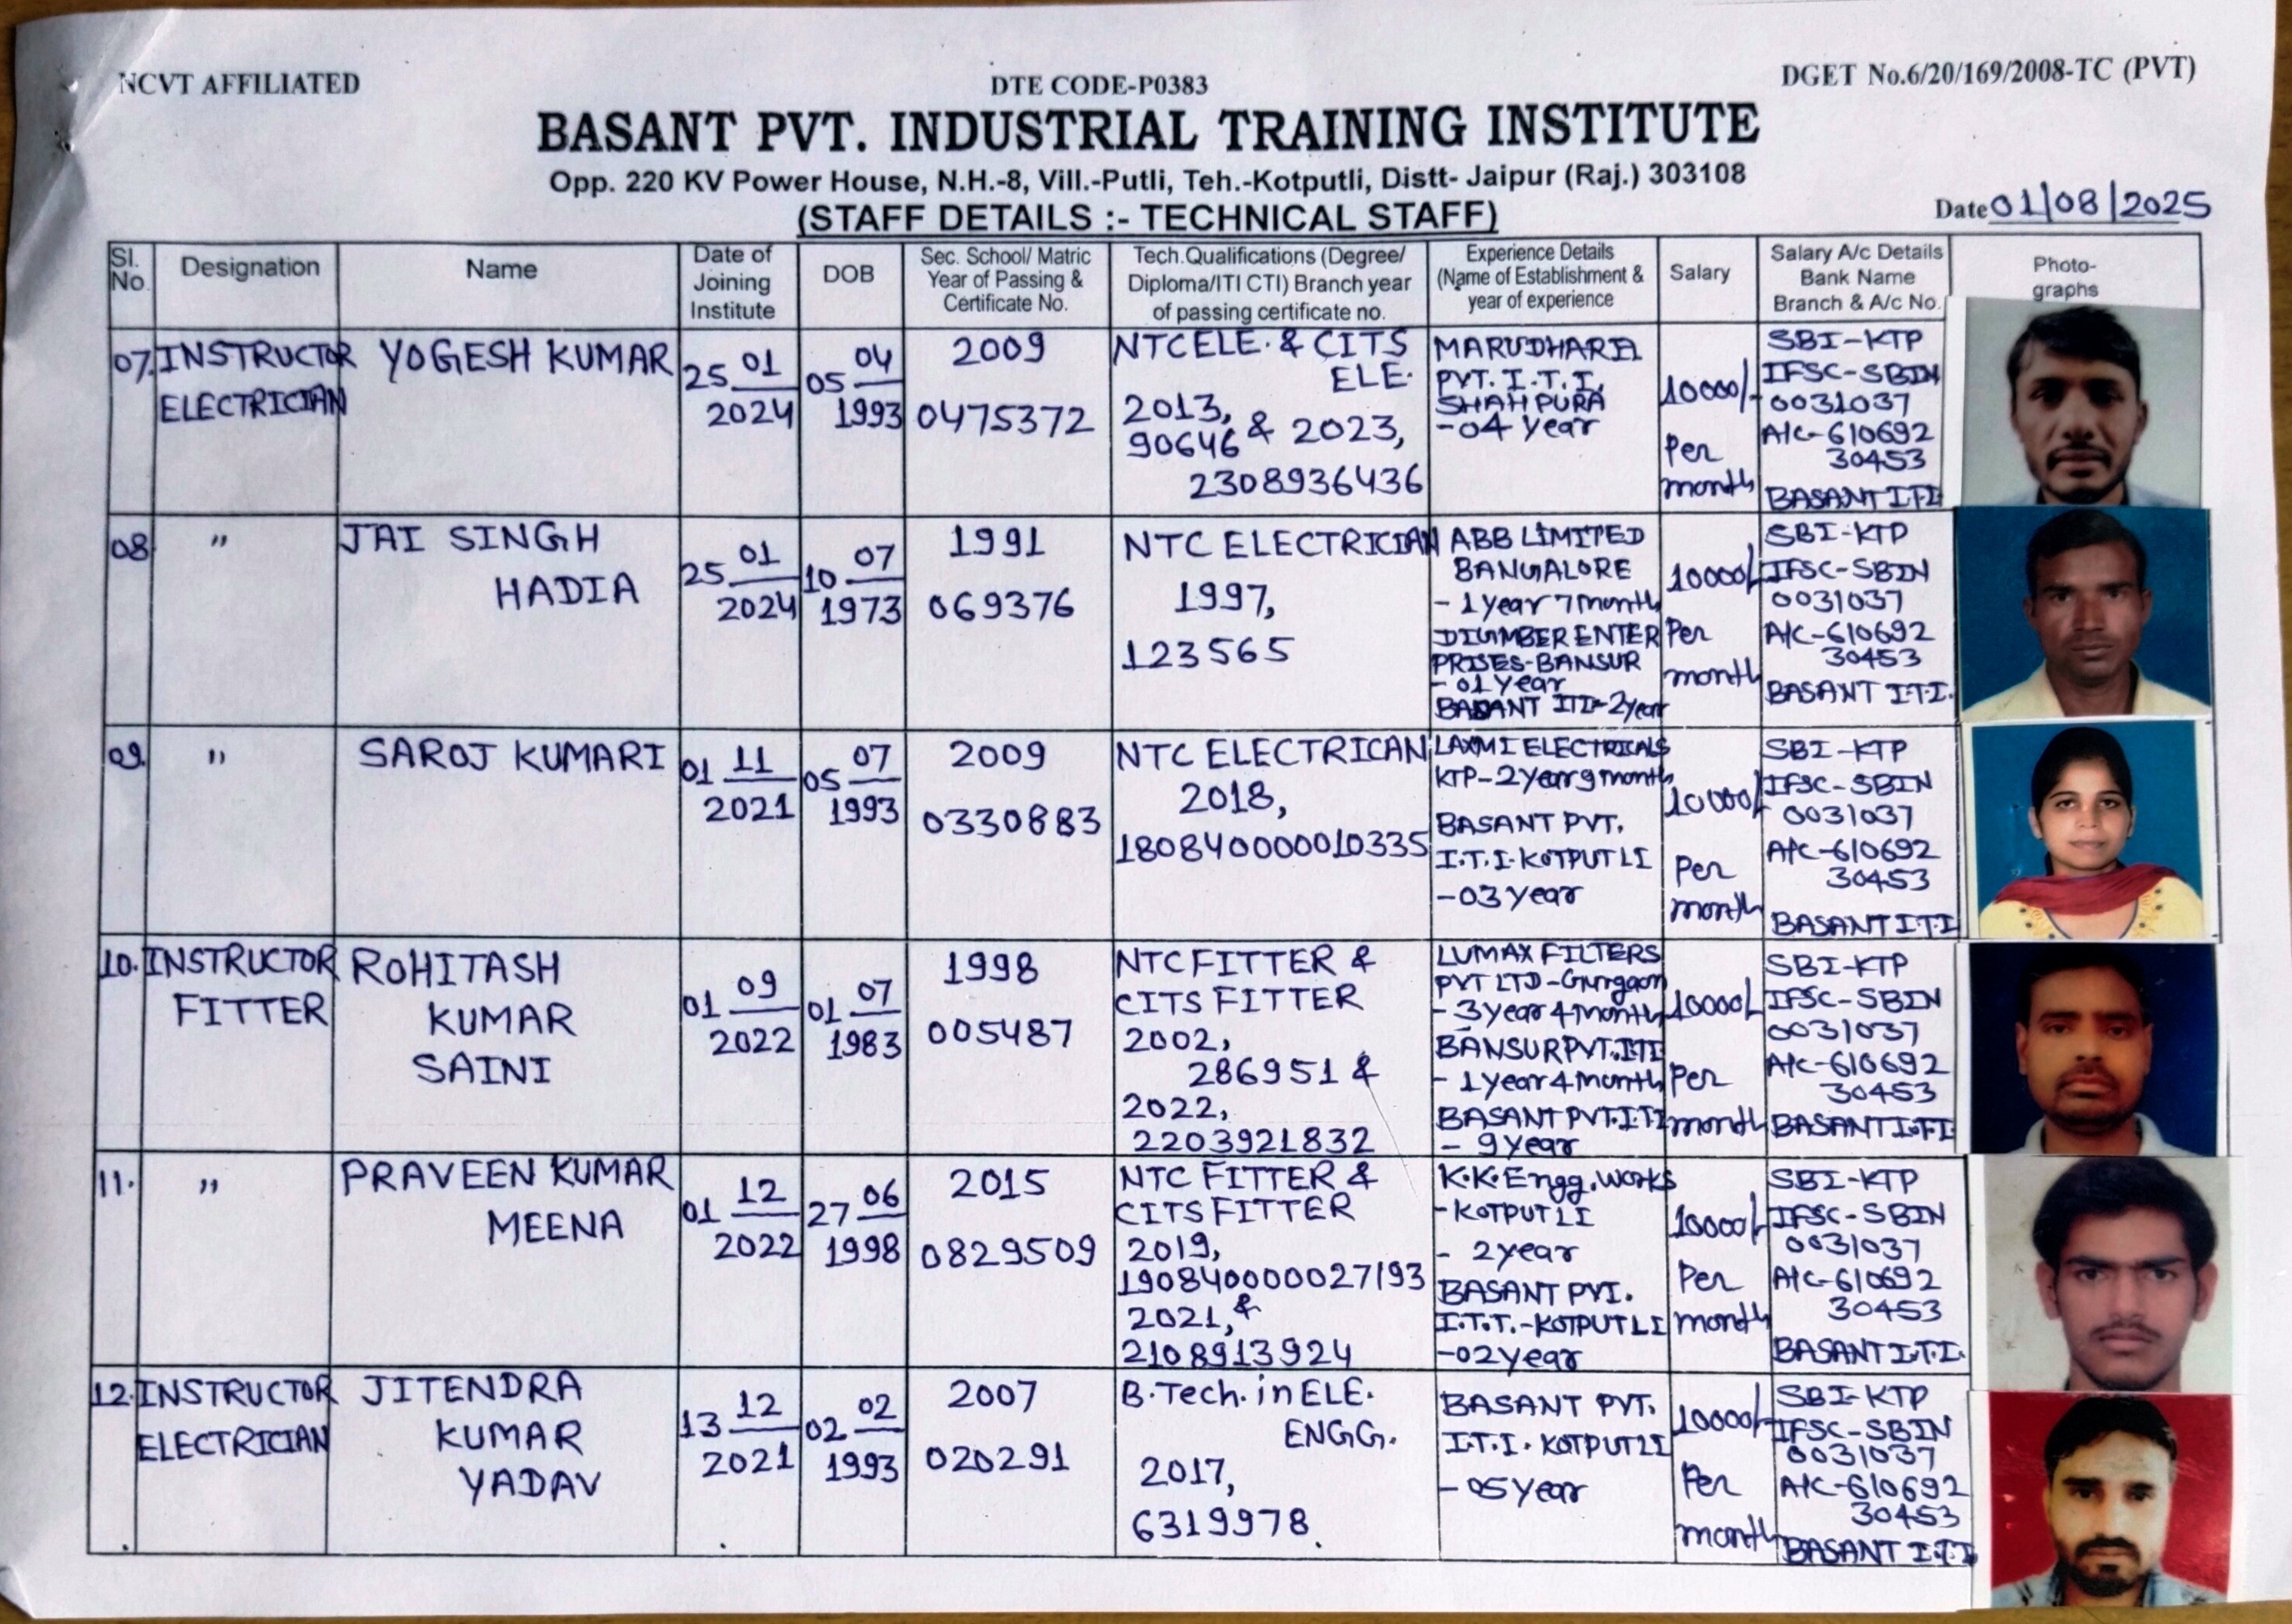 NCVT AFFILIATED
DTE CODE-P0383
DGET No.6/20/169/2008-TC (PVT)
BASANT PVT. INDUSTRIAL TRAINING INSTITUTE
Opp. 220 KV Power House, N.H.-8, Vill.-Putli, Teh.-Kotputli, Distt- Jaipur (Raj.) 303108
(STAFF DETAILS :- TECHNICAL STAFF)
Date 01/08/2025
Sl. No.
Designation
Name
Date of
Joining
Institute
DOB
Sec. School/ Matric
Year of Passing &
Certificate No.
Tech.Qualifications (Degree/
Diploma/ITI CTI) Branch year
of passing certificate no.
Experience Details
(Name of Establishment &
year of experience
Salary
Salary A/c Details
Bank Name
Branch & A/c No.
Photo-
graphs
07.
INSTRUCTOR
ELECTRICIAN
YOGESH KUMAR
25 01
2024
05 04
1993
2009
0475372
NTC ELE. & CITS
ELE.
2013,
90646 & 2023,
2308936436
MARUDHARA
PVT. I.T.I.
SHAHPURA
-04 Year
10000/-
Per
month
SBI-KTP
IFSC-SBIN
0031037
A/C-610692
30453
BASANT I.T.I
08
"
JAI SINGH
HADIA
25 01
2024
10 07
1973
1991
069376
NTC ELECTRICIAN
1997,
123565
ABB LIMITED
BANGALORE
- 1 Year 7 month
DIGMBER ENTER
PRISES-BANSUR
- 01 Year
BASANT ITI-2year
10000/-
Per
month
SBI-KTP
IFSC-SBIN
0031037
A/C-610692
30453
BASANT I.T.I.
09.
"
SAROJ KUMARI
01 11
2021
05 07
1993
2009
0330883
NTC ELECTRICAN
2018,
180840000010335
LAXMI ELECTRICALS
KTP-2Year 9 month
BASANT PVT.
I.T.I. KOTPUTLI
-03 Year
10000/-
Per
month
SBI-KTP
IFSC-SBIN
0031037
A/C-610692
30453
BASANT I.T.I
10.
INSTRUCTOR
FITTER
ROHITASH
KUMAR
SAINI
01 09
2022
01 07
1983
1998
005487
NTC FITTER &
CITS FITTER
2002,
286951 &
2022,
2203921832
LUMAX FILTERS
PVT LTD-Gurgaon
- 3 year 4 month
BANSUR PVT. ITI
- 1 Year 4 month
BASANT PVT. ITI
- 9 Year
10000/-
Per
month
SBI-KTP
IFSC-SBIN
0031037
A/C-610692
30453
BASANT I.T.I
11.
"
PRAVEEN KUMAR
MEENA
01 12
2022
27 06
1998
2015
0829509
NTC FITTER &
CITS FITTER
2019,
190840000027193
2021, &
2108913924
K.K. Engg. Works
-KOTPUTLI
- 2 year
BASANT PVT.
I.T.T.-KOTPUTLI
-02 Year
10000/-
Per
month
SBI-KTP
IFSC-SBIN
0031037
A/C-610692
30453
BASANT I.T.I.
12.
INSTRUCTOR
ELECTRICIAN
JITENDRA
KUMAR
YADAV
13 12
2021
02 02
1993
2007
020291
B.Tech. in ELE.
ENGG.
2017,
6319978
BASANT PVT.
I.T.I. KOTPUTLI
-05 Year
10000/-
Per
month
SBI-KTP
IFSC-SBIN
0031037
A/C-610692
30453
BASANT I.T.I